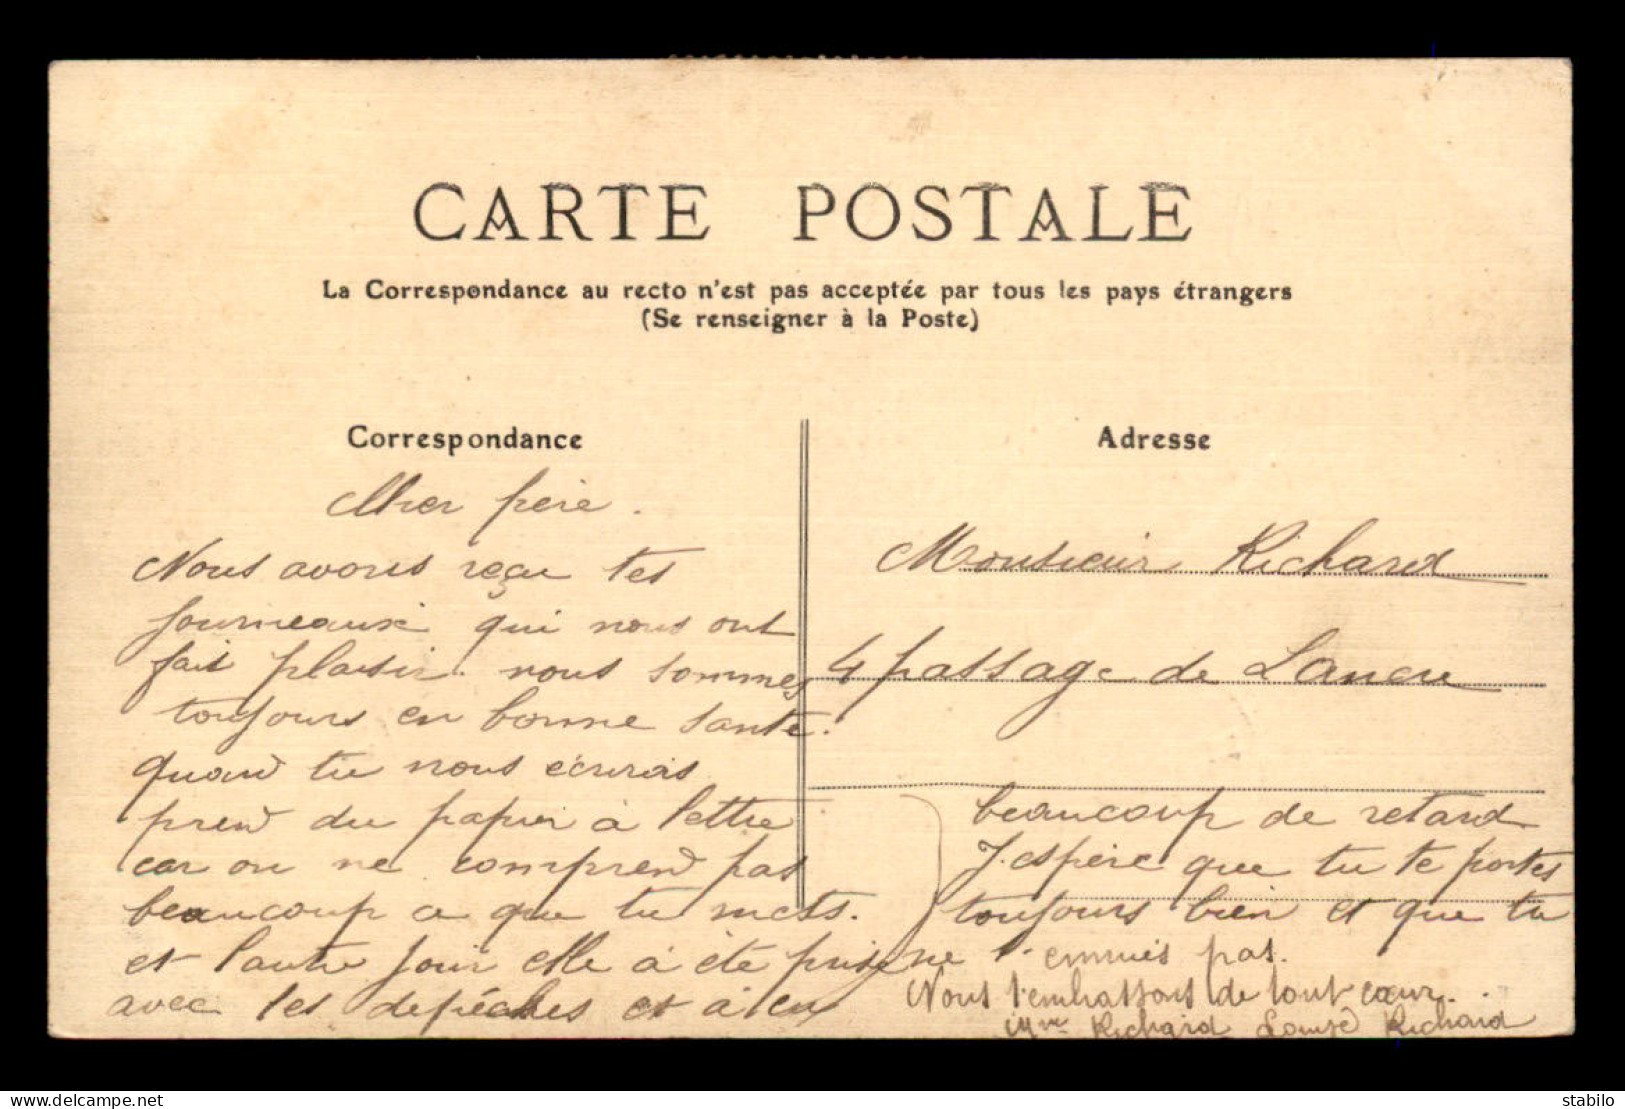 CARTE POSTALE
La Correspondance au recto n'est pas acceptée par tous les pays étrangers
(Se renseigner à la Poste)
Correspondance
Cher père.
Nous avons reçu tes
journeaux qui nous ont
fait plaisir. nous sommes
toujours en bonne santé.
quand tu nous écrivais
prend du papier à lettre
car on ne comprend pas
beaucoup ce que tu mets.
et l'autre jour elle a été prise
avec les depéches et à eu
Adresse
Monsieur Richard
4 passage de Lancre
beaucoup de retard
J'espère que tu te portes
toujours bien et que tu
ne t'ennuies pas.
Nous t'embrassons de tout cœur.
Mme Richard Louise Richard
delcampe.net
stabilo